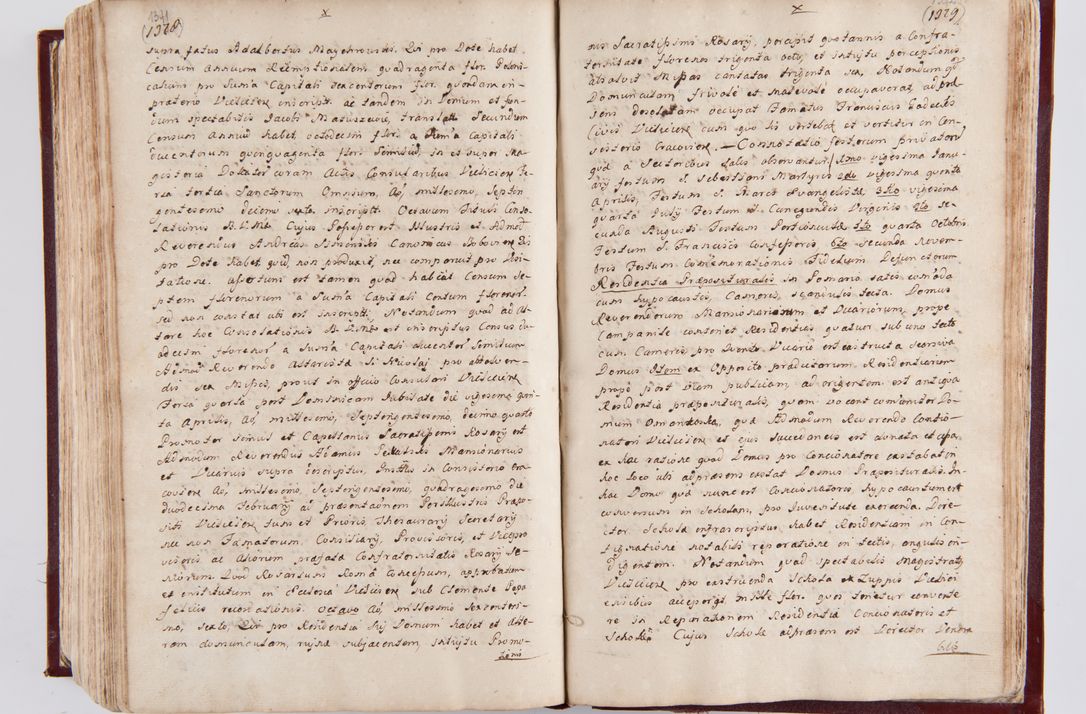 1341
(1328)
x
supra fatus Adalbertus Mayehrowski. Qui pro Dote habet
Censum Annuum Reemptionalem quadragenta flor. Poloni-
calium pro Suma Capitali sexcentorum flor. quondam in
pratorio Vieliciens inscript. ac tandem in Domum et fun-
dum spectabilis Jacobi Matuszewic, translat. Secundum
Censum Annuū habet octodecim flor. a Sum̄a Capitali
ducentorum quinquagenta flor. similiū, in et super
coram Actis Consularibus Vieliciens Fe-
ria tertia Sanctorum Omnium, Aō, millesimo, septin
gentesimo decimo sexto inscriptt. Octavum Tituli Conso-
lationis B.V.M. Cujus possessor est Illustris et Admod
Reverendus Andreas Canonicus
pro Dote habet quid, non produxit, nec comparuit pro Visi-
tatione. assertum est tamen quod habeat Censum Se-
ptem florenorum a Sum̄a Capitali Centum florenor.
sed non constat ubi est inscriptt. Notandum quod ad Al-
tare hoc Consolationis B.V.M. est inscriptus Census du-
odecim florenor. a Sum̄a Capitali ducentor similium
Admod Reverendo Altarista S. Nicolai pro absolven-
dis sex Missis, prout in officio Consulari Vieliciens
Feria quarta post Dominicam Jubilate die vigesima quin-
ta Aprilis, Aō, millesimo, Septengentesimo, decimo quarto
Promotor senius et Capellanus Sacratissimi Rosarii est
Admodum Reverendus Adamus Mansionarius
et Vicarius supra descriptus. Institt. in Consistorio Cra-
coviens Aō, millesimo, Septengentesimo, quadragesimo die
duodecima February ad praesentaōnem Perillustris Praepo-
siti Vieliciens tum et Prioris Thesaurary Secretary
nec non Fam̄atorum, Consiliary, Provisoris, et Vicepro
visoris ac Aliorum praefata Confraternitatis Rosary Se-
niorum. Quod Rosarium Romā Concessum, approbatum
et institutum in Ecclesia Vieliciens sub Clemente Papa
felicis recordationis octavo Aō, millesimo Sexcentesi-
mo, sexto, Qui pro Residentia Suj Domum habet et Alte-
ram domunculam, rujnā subjacentem, intujtu Promo-
tionis
(1329)
x
nis Sacratissimi Rosary, percipit quotannis a Confra-
ternitate florenos trigenta octo, et intujtu perceptionis
absolvit Missas cantatas trigenta sex, Notandum qđ
Domunculam frivole et malevole occupaverat, ad prae
sens desolatam occupat Famatus Franciscus Zadecki
Civis Vieliciens cum quo lis vertebat et vertitur in Con-
sistorio Cracoviens. — Connotatio festorum privatorū
quae a Sectoribus Salis observantur. 1mo vigesima Janu-
ary festum S. Sebastiani Martyris 2do vigesima quinta
Aprilis, Festum S. Marci Evangelista 3tio vigesima
quarta July Festum S. Cunegundis Virginis 4to se-
cunda Augusti Festum Portiuncula 5to quarta Octobris
Festum S. Francisci Confessoris, 6to Secunda Novem-
bris Festum Com̄emorationis Fidelium Defunctorum
Residentia Praepositurialis in Pomario satis com̄oda
cum hypocaustis, Cameris, scandulis tecta. Domus
Reverendorum Mansionariorum et Vicariorum, prope
Campanile continet Residentias quatuor sub uno tecto
cum Cameris pro Vicario est extructa seorsiva
Domus Item ex Opposito praedictorum Residentiarum
prope post viam publicam, ad orientem est antiqua
Residentia praepositurialis, quam vocant communiter Do-
mum Omanowska, quae Admodum Reverendo Contio-
natori Vieliciens et ejus succedaneis est donata et
ex hac ratione quod Domus pro Concionatore extabat in
hoc loco ubi adpraesens extat Domus Praepositurialis. In
hac Domo quae nunc est Concionatoris, hypocaustum est
conversum in Scholam, pro Juventute exercenda. Dire-
ctor Schola infrascriptus habet Residentiam in Con-
tignatione notabili reparatione in tectis, angulis in-
digentem. Notandum quod spectabilis Magistratus
Vieliciens pro extruenda Schola ex Zuppis Vielici
ensibus accepit mille flor. quos tenetur converte
re in Reparationem Residentiae Concionatoris et
Schola Cujus Schola adpraesens est Director Venera
bilis